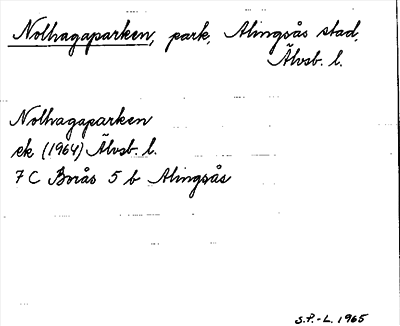 Nolhagaparken, park, Alingsås stad,
Älvsb. l.
Nolhagaparken
ek (1964) Älvsb. l.
7 C Borås 5 b Alingsås
S.P.-L. 1965